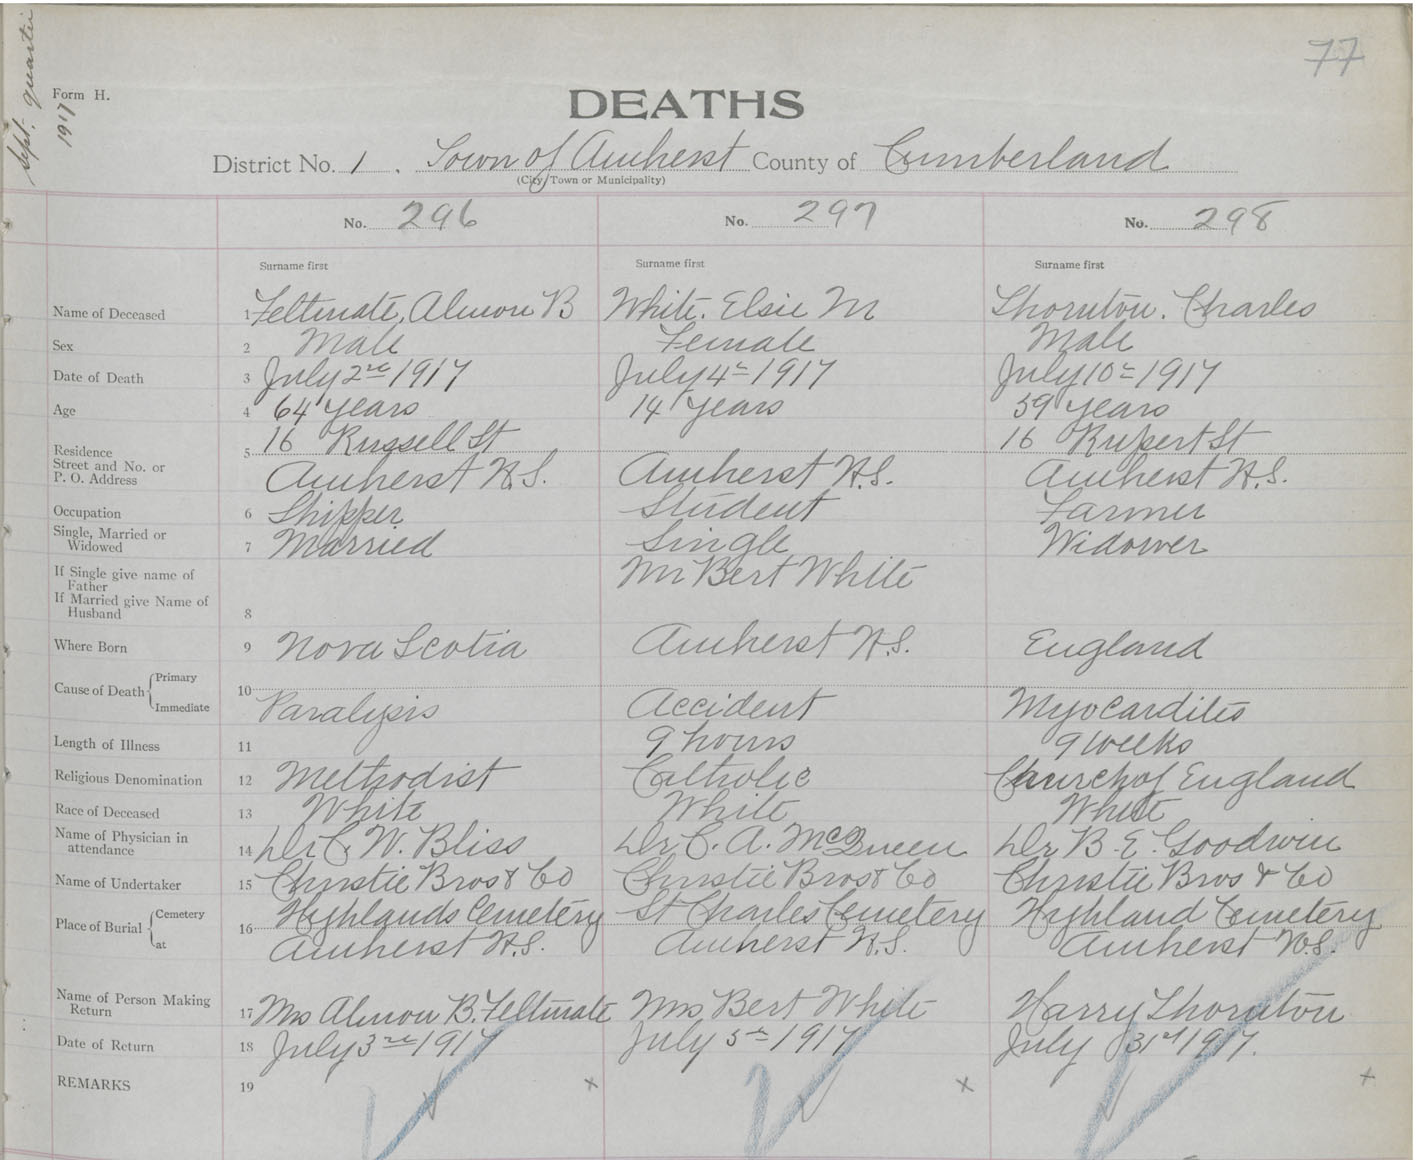 77
Sept. quarter
1917
Form H.
DEATHS
District No. 1. Town of Amherst County of Cumberland
(City Town or Municipality)
No. 296 No. 297 No. 298
Surname first Surname first Surname first
Name of Deceased 1 Feltmate, Almon B White. Elsie M Thornton. Charles
Sex 2 Male Female Male
Date of Death 3 July 2nd 1917 July 4th 1917 July 10th 1917
Age 4 64 years 14 years 59 years
16 Russell St 16 Rupert St
Residence 5
Street and No. or
P. O. Address Amherst N.S. Amherst N.S. Amherst N.S.
Occupation 6 Shipper Student Farmer
Single, Married or
Widowed 7 Married Single Widower
If Single give name of Mr Bert White
Father
If Married give Name of
Husband 8
Where Born 9 Nova Scotia Amherst N.S. England
Cause of Death Primary 10
Immediate Paralysis Accident Myocardites
Length of Illness 11 9 hours 9 weeks
Religious Denomination 12 Methodist Catholic Church of England
Race of Deceased 13 White White White
Name of Physician in
attendance 14 Dr C. W. Bliss Dr C. A. McQueen Dr B. E. Goodwin
Name of Undertaker 15 Christie Bros & Co Christie Bros & Co Christie Bros & Co
Place of Burial Cemetery 16 Highlands Cemetery St Charles Cemetery Highland Cemetery
at Amherst N.S. Amherst N.S. Amherst N.S.
Name of Person Making
Return 17 Mrs Almon B. Feltmate Mrs Bert White Harry Thornton
Date of Return 18 July 3rd 1917 July 5th 1917 July 31st 1917.
REMARKS 19 x x x